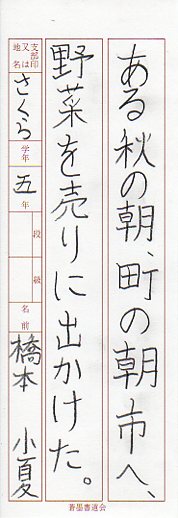 ある秋の朝、町の朝市へ、
野菜を売りに出かけた。
支部印又は地名 さくら 学年 五年 段 級 名前 橋本 小夏
蒼墨書道会